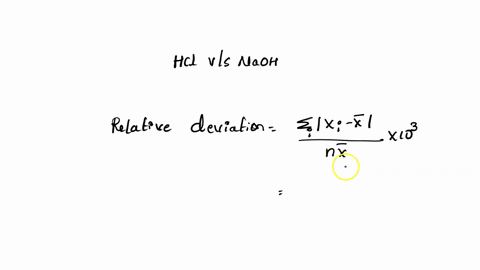 HCl v/s NaOH
Relative deviation = Σᵢ |xᵢ - x̄| / n x̄ × 10³
=